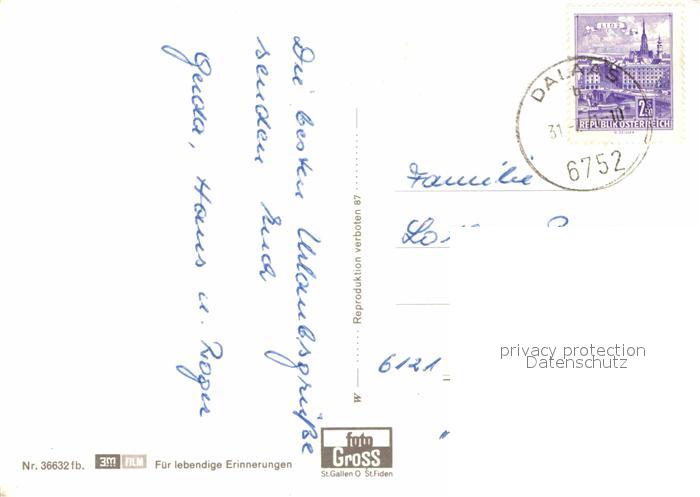 Die besten Urlaubsgrüße
senden Euch
Gerda, Hans u. Roger
LINZ
2.50
REPUBLIK ÖSTERREICH
DALAAS
31.
6752
Familie
6121
W ——— ······ Reproduktion verboten 87 ·········
privacy protection
Datenschutz
foto
Gross
St.Gallen O St.Fiden
Nr. 36632 fb. 3M FILM Für lebendige Erinnerungen